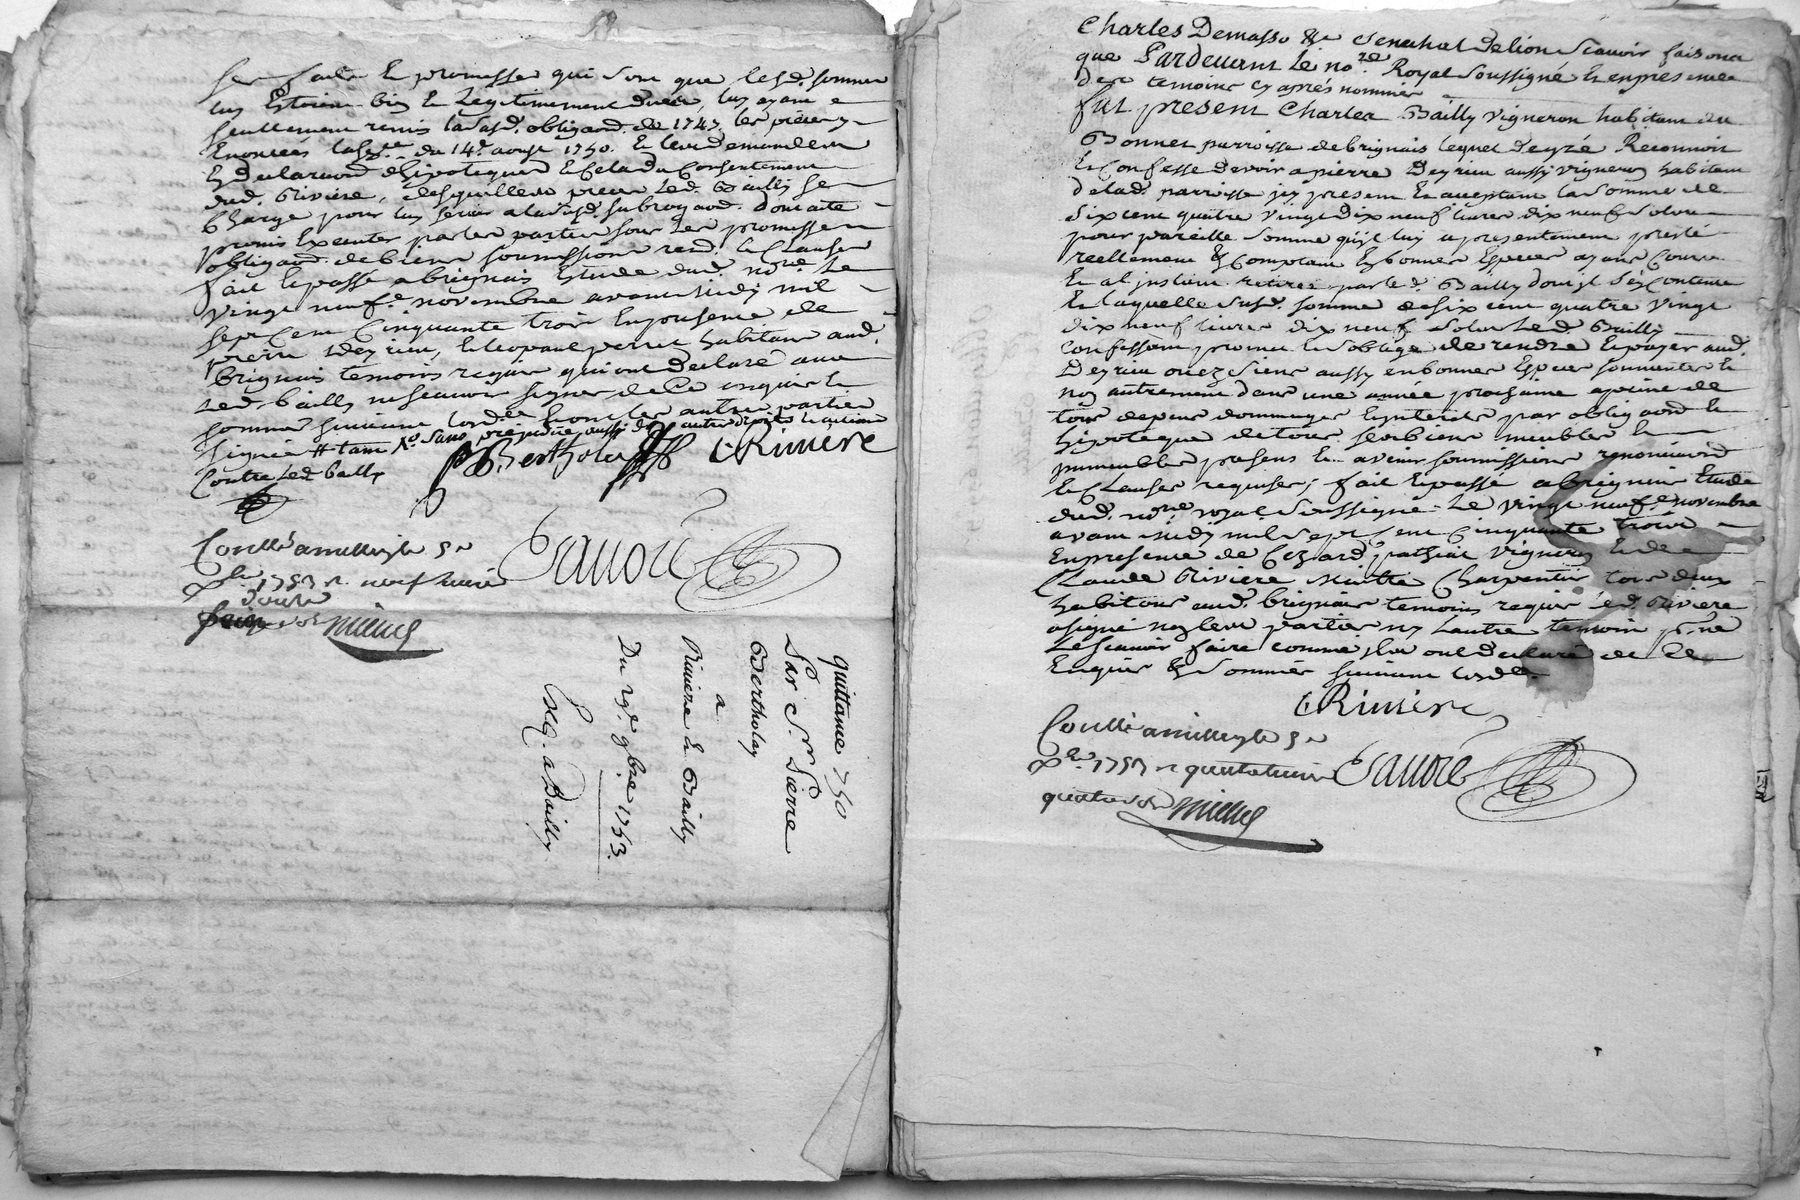 faits la promesse qui sont que lesd. sommes
luy Estoient bien et Legitimement duees, luy ayant
seullement remis lasusd. obligaõn. de 1747, les présentes
Enoncées du 14e. aoust 1750. Et leur demandent
dhipoteques Et cela du Consentement
dud. Riviere, desquelles pieces Led. Bailly se
Charge pour luy servir a lasusd. subrogaõn. dont acte
promis Executer par les parties sous Les promesses
obligaõn. de biens soumissions renõ. & Clauses
fait Et passé a brignais Etude dud. nore. Le
vingt neufe. novembre avant midy mil
sept Cent Cinquante trois En presence de
pierre Deyrieu, Et leopaul perret habitans aud.
brignais temoins requis qui ont declaré avec
Led. bailly ne scavoir signer de Ce enquis Et
sommés suivant Lordce. Et ont les autres parties
signé # tam No. Sans prejudice aussy des autres droits Et actions
Contre Led. bailly
P Bertholay CRiviere
Conllé a millery le 5e
Xbre 1753 r. neuf livres
douze
sols Mielle
Savoie
quittance 750
Par Sr. Pierre
Bertholay
a
Riviere et Bailly
Du 29e. 9bre 1753.
Exp. a Bailly
Charles Demasso &c Senechal de lion Scavoir faisons
que Pardevant Le nore. Royal Soussigné Et en presence
des temoins cy après nommés
fut present Charles Bailly vigneron habitant du
Bonnet parroisse de brignais lequel de gré Reconnoit
Et Confesse devoir a pierre Deyrieu aussy vigneron habitant
de lad. parroisse icy present Et acceptant la somme de
six cent quatre vingt dix neuf livres dix neuf sols
pour pareille somme qu'il luy a presentement presté
reellement Et Comptant En bonnes Especes ayant Cours
Et a l'instant retirée par led. Bailly dont il s'est Contenté
Et laquelle susd. somme de six cent quatre vingt
dix neuf livres dix neuf sols Led. Bailly
Confessant promet Et s'oblige de rendre Et payer aud.
Deyrieu ou ez siens aussy en bonnes Especes sonnantes Et
non autrement dans une année prochaine apeine de
tous depens dommages Et interets par obligaõn. Et
hipoteque de tous ses biens meubles Et
immeubles presens Et avenir soumissions renonciaõn
Et Clauses requises; fait Et passé a brignais Etude
dud. nore. royal soussigné Le vingt neufe. novembre
avant midy mil sept Cent Cinquante trois
En presence de Cezard pathiat vigneron Et de
Claude Riviere maitre Charpentier tous deux
habitans aud. brignais temoins requis led. Riviere
a signé non les parties ny Lautre temoin pr. ne
Le scavoir faire comme ils ont declaré de Ce
Enquis Et sommés suivant Lordce.
CRiviere
Conllé a millery le 5e
Xbre 1753 r quatre livres
quatre sols Mielle
Savoie